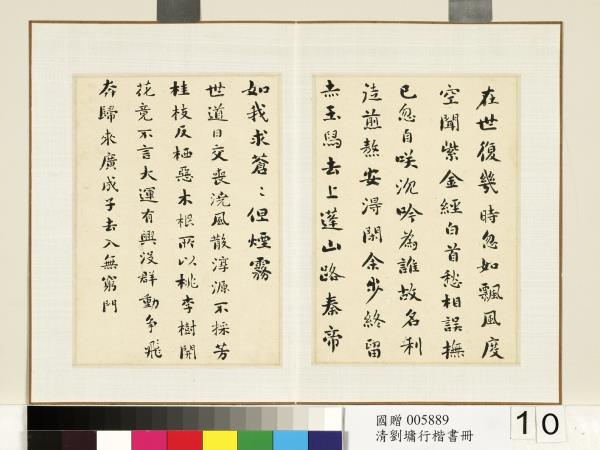 在世復幾時忽如飄風度
空聞紫金經白首愁相誤撫
已忽自咲沉吟為誰故名利
徒煎熬安淂閑余步終留
赤玉舄去上蓬山路秦帝
如我求蒼〻但煙霧
世道日交喪澆風散淳源不採芳
桂枝反栖惡木根所以桃李樹開
花竟不言大運有興沒群動爭飛
奔歸來廣成子去入無窮門
國贈 005889
清劉墉行楷書冊
10